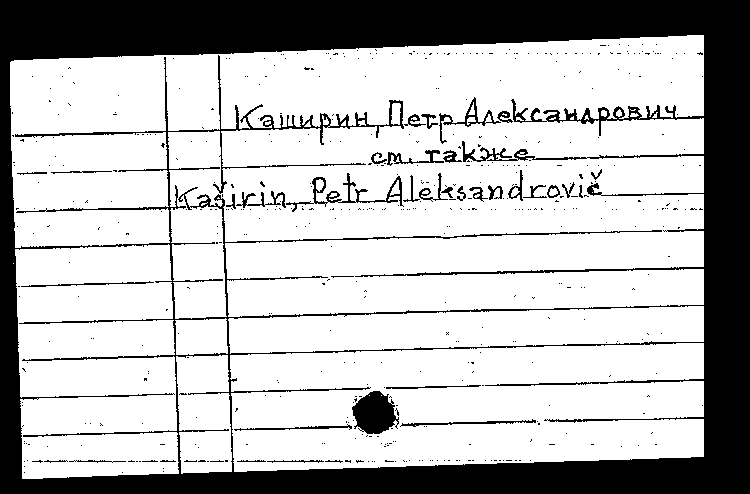 Каширин, Петр Александрович
см. также
Kaširin, Petr Aleksandrovič